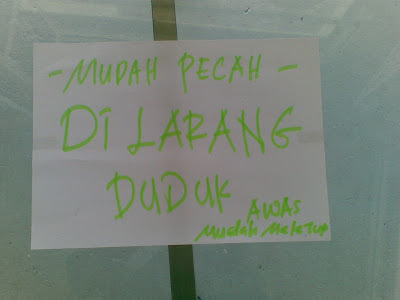 - MUDAH PECAH -
DI LARANG
DUDUK
AWAS
Mudah Meletup